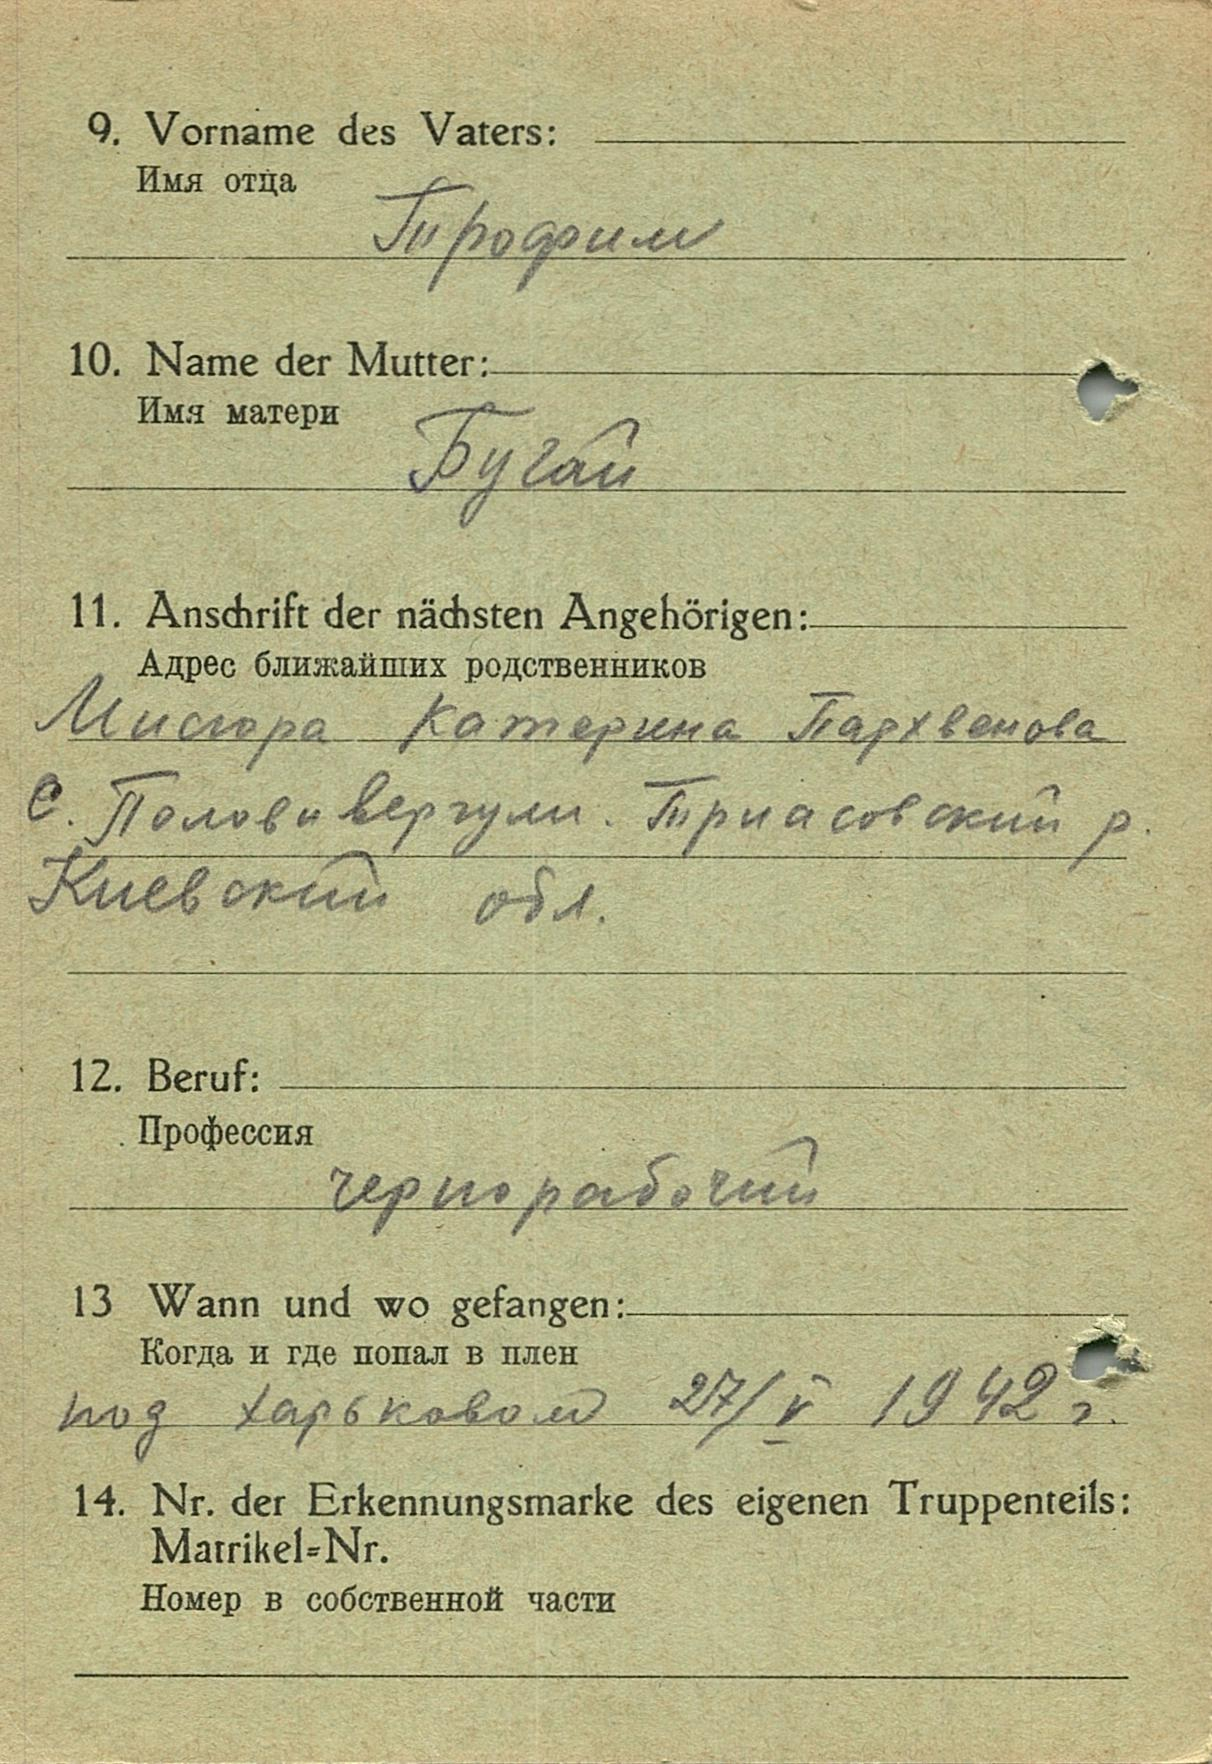 9. Vorname des Vaters:
Имя отца
Трофим
10. Name der Mutter:
Имя матери
Бугай
11. Anschrift der nächsten Angehörigen:
Адрес ближайших родственников
Мисюра Катерина Пархвенова
С. Половивергули. Триасовский р.
Киевский обл.
12. Beruf:
Профессия
чернорабочий
13 Wann und wo gefangen:
Когда и где попал в плен
под харьковом 27/V 1942 г.
14. Nr. der Erkennungsmarke des eigenen Truppenteils:
Matrikel=Nr.
Номер в собственной части